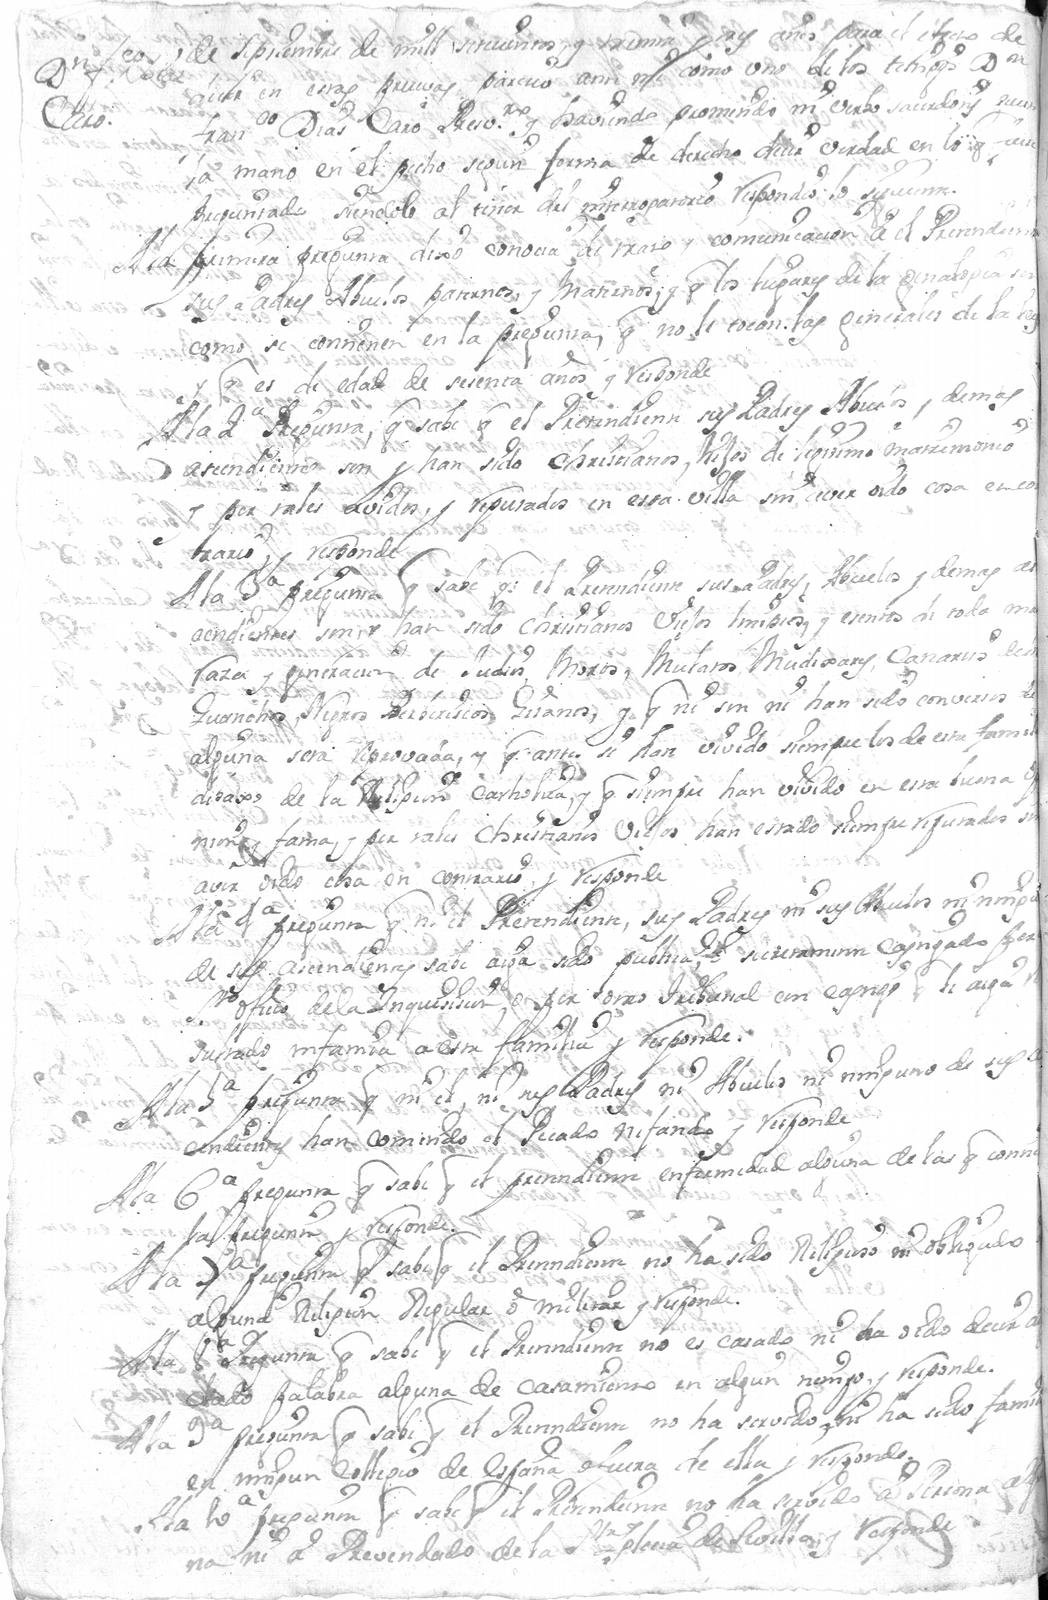 Dn Franco Diaz
Caro.
de Septiembre de mill setecientos, y treinta y tres años para el efecto de
aver en estas pruevas parecio ante mi como uno de los testigos Dn
Franco Dias Caro Presvro y haviendo prometido in verbo sacerdotis puesta
la mano en el pecho segun forma de derecho decir verdad en lo q fuere
preguntado siendolo al tenor del interrogatorio respondio lo siguiente.
A la primera pregunta dixo conocia de trato y comunicacion a el Pretendiente
sus Padres Abuelos paternos, y Maternos, y q los lugares de la genealogia son
como se contienen en la pregunta, q no le tocan las generales de la ley
y q es de edad de sesenta años y responde
A la 2a Pregunta, q sabe q el Pretendiente sus Padres Abuelos y demas
ascendientes son y han sido Christianos, hijos de legitimo matrimonio
y por tales avidos, y reputados en esta villa sin aver oido cosa en con
trario, y responde
A la 3a pregunta q sabe q el Pretendiente sus Padres, Abuelos y demas as
cendientes son, y han sido Christianos viejos limpios, y esentos de toda mala
raza y generacion de Judios, Moros, Mulatos Mudexares, Canarios
Guanchos, Negros Berberiscos Gitanos, y q ni son ni han sido conversos de
alguna seta reprovada, y q antes si han vivido siempre los de esta familia
de la Religion Catholica, y q siempre han vivido en esta buena opi
nion y fama, y por tales Christianos viejos han estado siempre reputados sin
aver oido cosa en contrario y responde
A la 4a pregunta q ni el Pretendiente, sus Padres ni sus Abuelos ni ninguno
de sus ascendientes sabe aya sido publica, o secretamente castigado por el
Sto oficio de la Inquisicion, o por otro Tribunal con castigo q le aya re
sultado infamia a esta familia y responde.
A la 5a pregunta q ni el, ni sus Padres ni Abuelos ni ninguno de sus as
cendientes han cometido el Pecado Nefando y responde
A la 6a pregunta q sabe q el pretendiente enfermedad alguna de las q contiene
la pregunta y responde.
A la 7a pregunta q sabe q el Pretendiente no ha sido Religioso ni obligado
alguna Religion Regular o militar y responde.
A la 8a Pregunta q sabe q el Pretendiente no es casado ni ha oido decir a
dado palabra alguna de casamiento en algun tiempo, y responde.
A la 9a pregunta q sabe q el Pretendiente no ha servido, ni ha sido familiar
en ningun Collegio de España o fuera de ella y responde.
A la 10a pregunta q sabe q el Pretendiente no ha servido a Persona algu
na ni a Prevendado de la Sta Yglecia de Sevilla, y responde